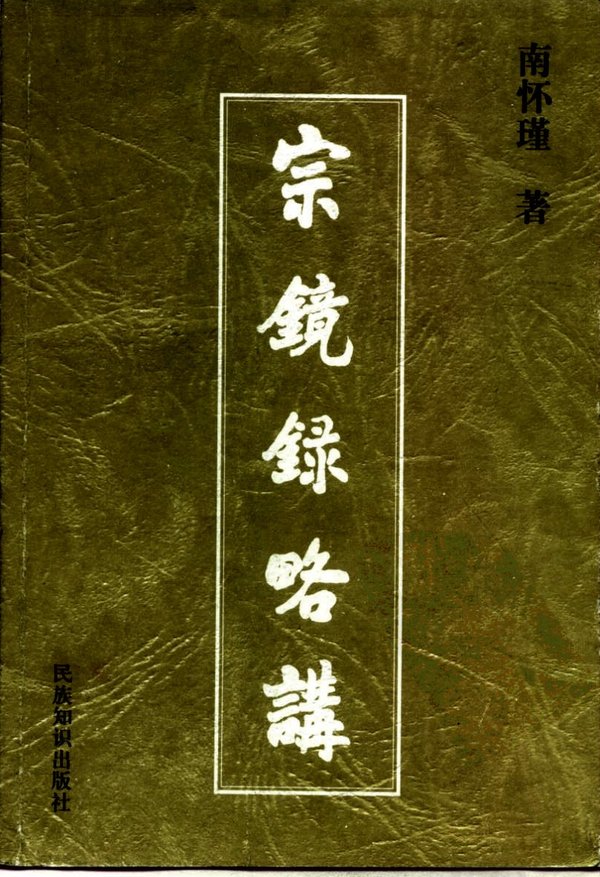 南怀瑾 著
宗鏡録略講
民族知识出版社